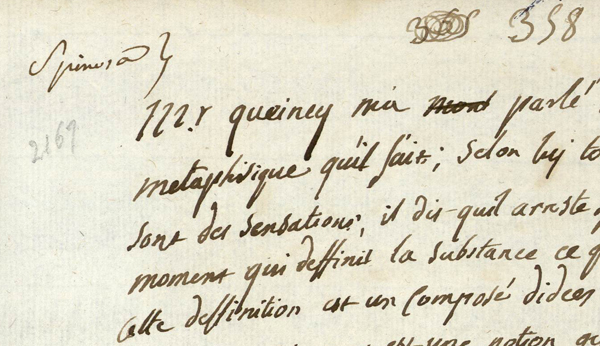 358
Spinosa
2169
Mr queiney m'a parlé
metaphisique qu'il fait; selon luy to
sont des sensations, il dit quil arreste
moment qui deffinit la substance ce q
cette deffinition est un composé didees
est une notion